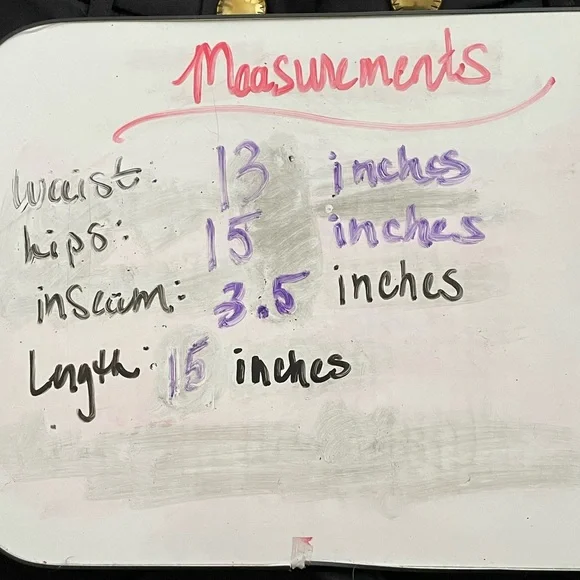 Measurements
waist: 13 inches
hips: 15 inches
inseam: 3.5 inches
Length: 15 inches